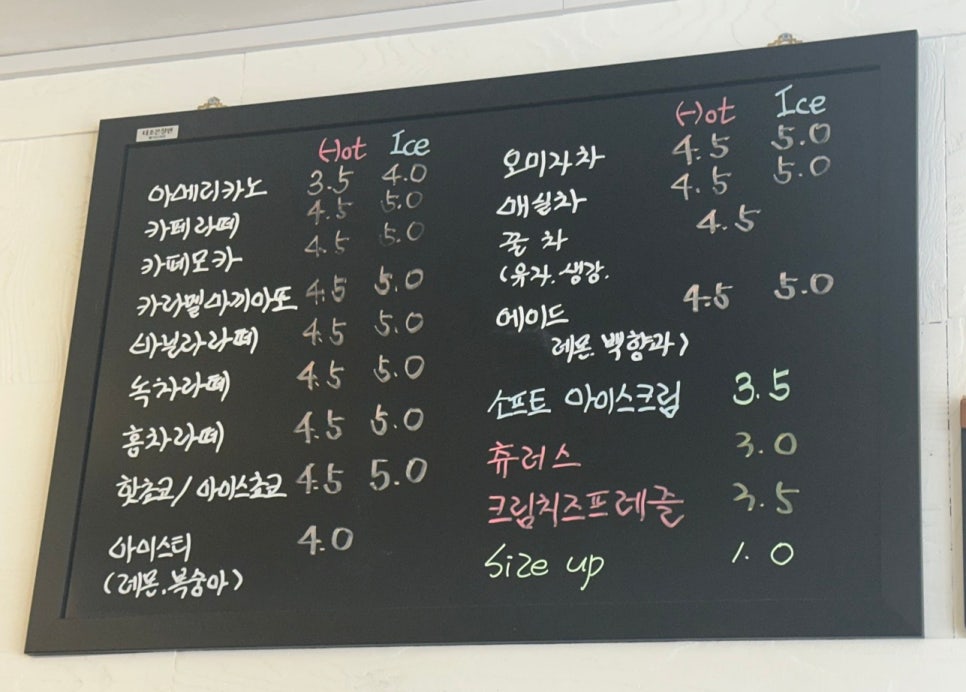 Hot Ice
아메리카노 3.5 4.0
카페라떼 4.5 5.0
카페모카 4.5 5.0
카라멜마끼아또 4.5 5.0
바닐라라떼 4.5 5.0
녹차라떼 4.5 5.0
홍차라떼 4.5 5.0
핫쵸코/아이스쵸코 4.5 5.0
아이스티 4.0
(레몬.복숭아)
Hot Ice
오미자차 4.5 5.0
매실차 4.5 5.0
꿀차 4.5
(유자.생강.
에이드 4.5 5.0
레몬.백향과)
소프트 아이스크림 3.5
츄러스 3.0
크림치즈프레즐 3.5
Size up 1.0